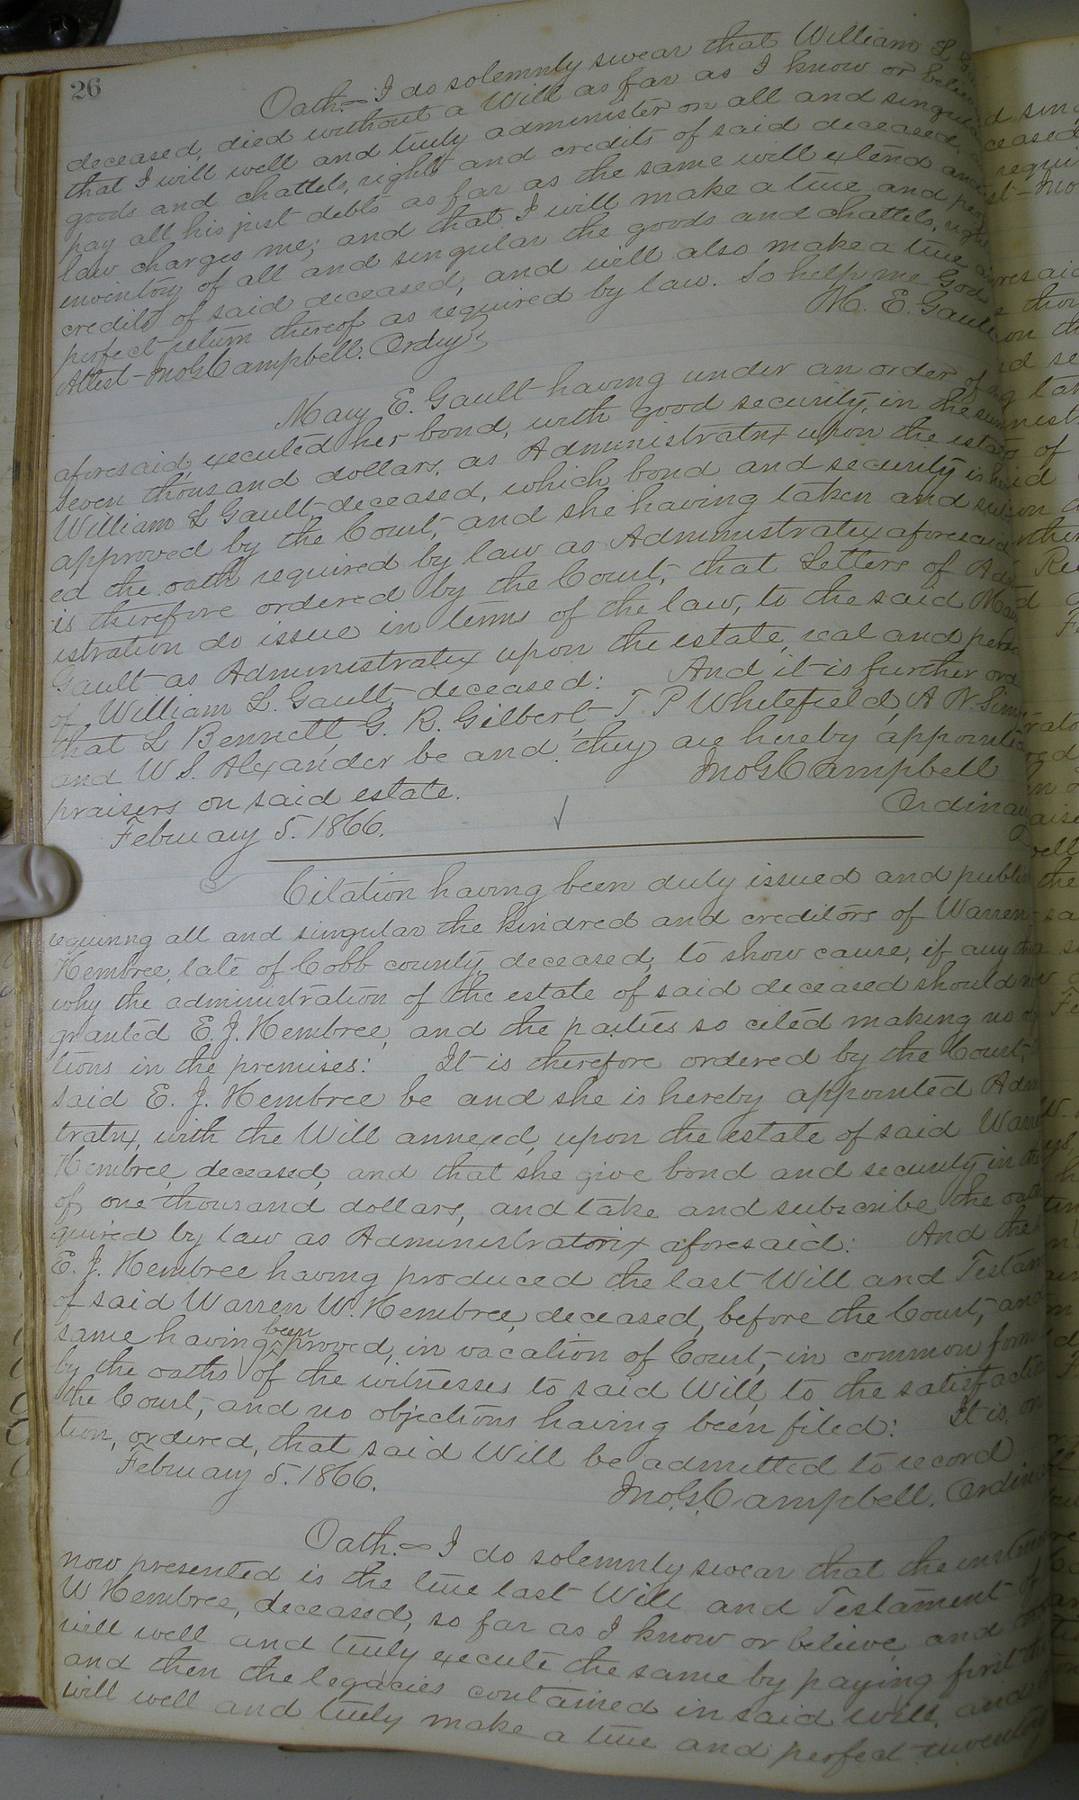 26
Oath.— I do solemnly swear that William L
deceased, died without a Will as far as I know or believe
that I will well and truly administer on all and singular
goods and chattels, rights and credits of said deceased,
pay all his just debts as far as the same will extend and
law charges me; and that I will make a true and
inventory of all and singular the goods and chattels, rights
credits of said deceased, and will also make a true
perfect return thereof as required by law. So help me God.
M. E. Gault
Attest— Jno G Campbell. Ordny
Mary E. Gault having under an order of
aforesaid, executed her bond, with good security, in the sum
seven thousand dollars, as Administratrix upon the estate of
William L Gault deceased, which bond and security is
approved by the Court, and she having taken and
ed the oath required by law as Administratrix aforesaid
is therefore ordered by the Court, that Letters of
istration do issue in terms of the law, to the said
Gault as Administratrix upon the estate, real and
of William L. Gault, deceased: And it is further
that L Bennett G. R. Gilbert T P Whitefield, A N
and W S. Alexander be and they are hereby
praisers on said estate. Jno G Campbell
February 5. 1866. Ordinary
Citation having been duly issued and
requiring all and singular the kindred and creditors of Warren
Hembree, late of Cobb county, deceased, to show cause, if any
why the administration of the estate of said deceased should
granted E. J. Hembree, and the parties so cited making no
tions in the premises: It is therefore ordered by the Court,
said E. J. Hembree be and she is hereby appointed
tratrix, with the Will annexed, upon the estate of said
Hembree, deceased, and that she give bond and security in the
of one thousand dollars, and take and subscribe the
quired by law as Administratorix aforesaid: And the
E. J. Hembree having produced the last Will and
of said Warren W. Hembree, deceased, before the Court, and
same having been proved, in vacation of Court, in common form
by the oaths of the witnesses to said Will, to the
the Court, and no objections having been filed: It is, on
tion, ordered, that said Will be admitted to record
February 5. 1866. Jno. G. Campbell.
Oath.— I do solemnly swear that the
now presented is the true last Will and Testament
W Hembree, deceased, so far as I know or believe, and
will well and truly execute the same by paying first
and then the legacies contained in said will, and
will well and truly make a true and perfect inventory